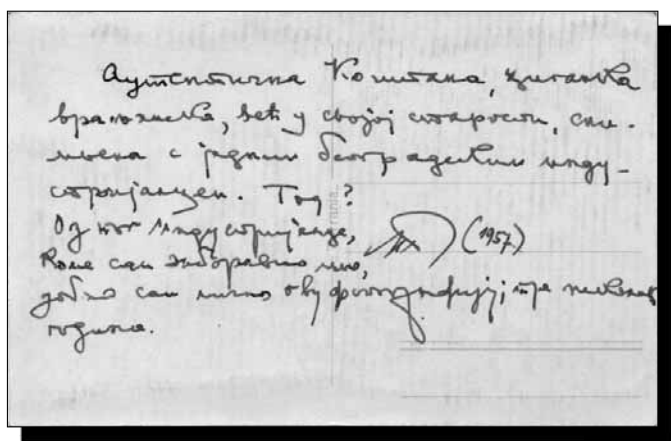 Аутентична Коштана, циганка
врањанска, већ у својој старости, сни-
мљена с једним београдским инду-
стријалцем ?
Од тог индустријалца,
коме сам заборавио име, (1957)
добио сам лично ову фотографију, пре
година.